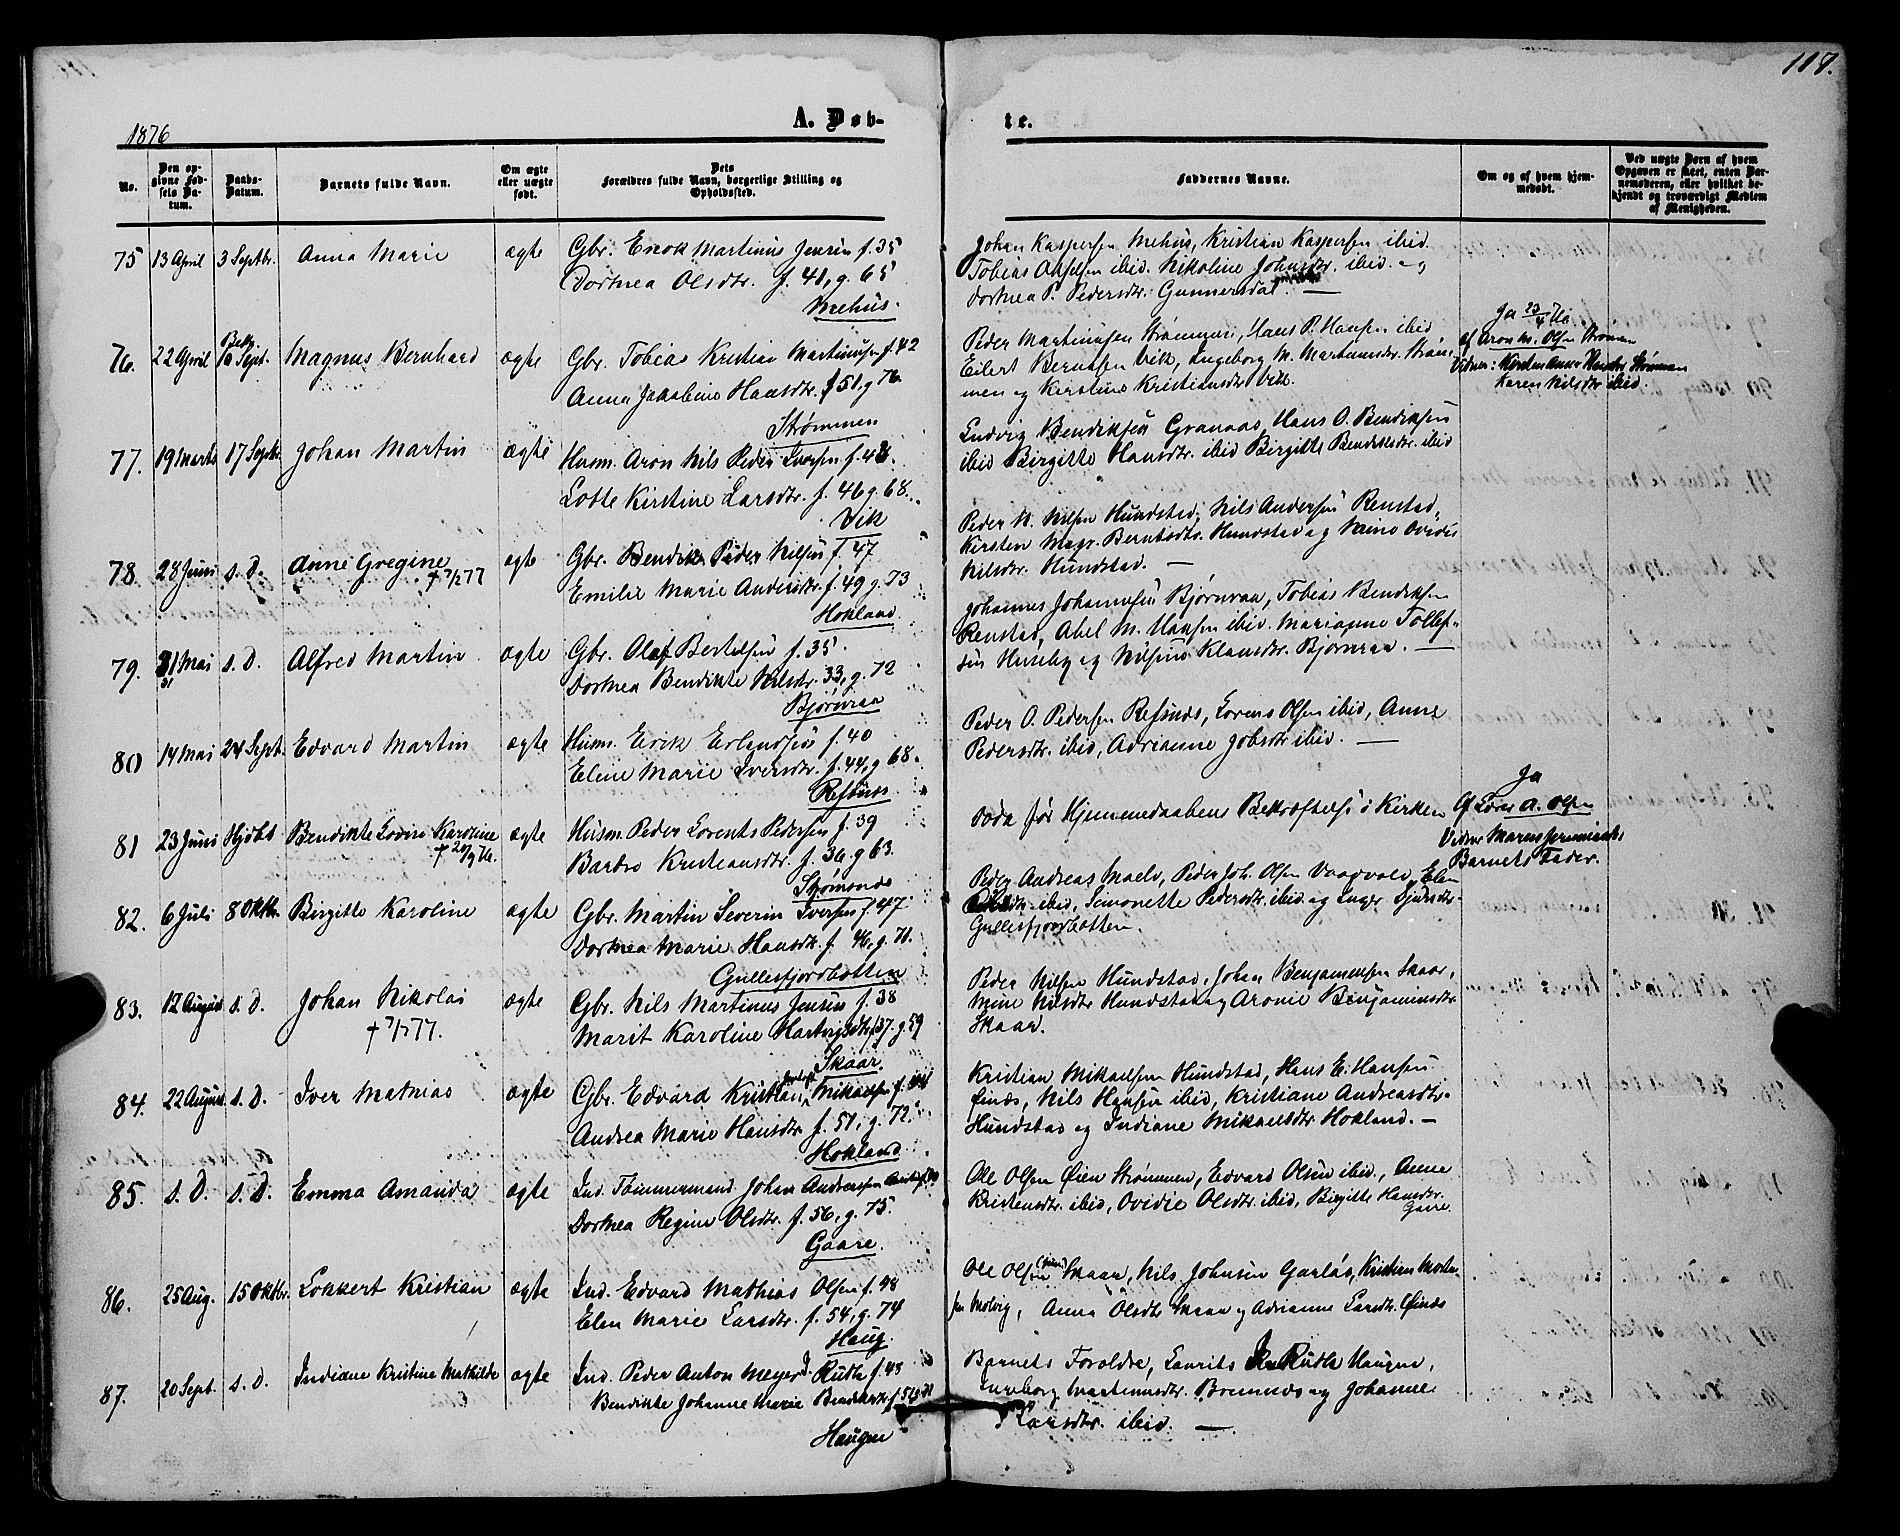 118.
1876
A. Døb-
te.
No.
Den op-
givne Fød-
sels Da-
tum.
Daabs-
Datum.
Barnets fulde Navn.
Om ægte
eller uægte
født.
Dets
Forældres fulde Navn, borgerlige Stilling og
Opholdssted.
Faddernes Navne.
Om og af hvem hjem-
medøbt.
Ved uægte Børn af hvem
Opgaven er skeet, enten Bar-
nemoderen, eller hvilket be-
kjendt og troværdigt Medlem
af Menigheden.
75 13 April 3 Septbr. Anna Marie ægte Gbr. Enok Martinus Jensen f. 35
Dorthea Olsdtr. f. 41, g. 65
Mehus.
Johan Kaspersen Mehus, Kristian Kaspersen ibid.
Tobias ibid. Nikoline Johnsdtr. ibid. og
Dorthea P. Pedersdtr. Gunnersdal. —
76. 22 April Bekr. 10 Sept. Magnus Bernhard ægte Gbr. Tobias Kristian Martinusen f. 42
Anna Jakobine Hansdtr. f 51, g 76.
Strømmen
Peder Martinusen Strømmen, Hans P. Hansen ibid
Eilert Berntsen Vik, Ingeborg M. Martinusdtr. Strøm-
men og Kirstine Kristiansdtr Vik.
Ja 23/4 76
af Aron M. Olsen Strømmen
Vidner: Kirsten Anna Strømmen
Karen Nilsdtr ibid.
77. 19 Marts 17 Septbr. Johan Martin ægte Husm. Aron Nils Peder Iversen f. 43.
Lotte Kirstine Larsdtr. f. 46 g. 68.
Vik
Ludvig Bendiksen Granaas, Hans O. Bendiksen
ibid Birgitte Hansdtr. ibid Birgitte Bendiksdtr. ibid
78. 28 Juni s. D. Anne Gregine ægte Gbr. Bendik Peder Nilsen f. 47
+ 7/1 77
Emilie Marie Andersdtr. f. 49 g. 73
Hokland
Peder N. Nilsen Hundstad, Nils Andersen Renstad,
Kirsten Magr. Berntsdtr. Hundstad og Nina Ovidie
Nilsdtr. Hundstad. —
79. 31 Mai s. D. Alfred Martin ægte Gbr. Olaf Bertelsen f. 35.
Dorthea Bendikte Nilsdtr. 33, g. 72
Bjørnraa
Johannes Johannesen Bjørnraa, Tobias Bendiksen
Renstad, Abel M. Hansen ibid. Marianne Tollef-
sen Huseby og Nilsine Klausdtr. Bjørnraa. —
80 14 Mai 24 Sept. Edvard Martin ægte Husm. Erik Erlandsen f. 40
Eline Marie Iversdtr. f. 44, g 68.
Refsnes
Peder O. Pedersen Refsnes, Lorens Olsen ibid, Anne
Pedersdtr. ibid, Adrianne Jobsdtr ibid. —
81 23 Juni Hjdbt Bendikte Lovise Karoline ægte Husm. Peder Lorents Pedersen f. 39
+ 20/9 76.
Barbro Kristiansdtr. f. 36. g 63.
Døde før Hjemmedaabens Bekræftelse i Kirken
Ja
Af Lorns A. Olsen
Vidner Maren
Barnets Fader.
82. 6 Juli 8 Oktbr. Birgitte Karoline ægte Gbr. Martin Severin Iversen f. 47
Dorthea Marie Hansdtr. f. 46, g. 70.
Gullesfjordbotten
Peder Andreas Maelv, Peder Joh. Olsen Vaagvold, Elen
ibid, Simonette Pedersdtr. ibid og Inger Sjursdtr.
Gullesfjordbotten.
83. 12 August s. D. Johan Nikolai ægte Gbr. Nils Martinus Jensen f. 38
+ 7/1 77.
Marit Karoline Hartvigsdtr. f 37. g. 59
Skaar.
Peder Nilsen Hundstad, Johan Benjaminsen Skaar,
Mine Nilsdtr Hundstad og Aronie Benjaminsdtr
Skaar.
84. 22 August. s. D. Iver Mathias ægte Gbr. Edvard Kristian Mikaelsen f. 44
Andrea Marie Hansdtr f. 51, g. 72.
Hokland
Kristian Mikaelsen Hundstad, Hans E. Hansen
Øinæs, Nils Hansen ibid, Kristiane Andreasdtr.
Hundstad og Indiane Mikaelsdtr Hokland. —
85. s. D. s. D. Emma Amanda ægte Ind. Tømmermand Johan Andreassen
Dorthea Regine Olsdtr. f. 56, g. 75.
Gaare.
Ole Olsen Øien Strømmen, Edvard Olsen ibid., Anne
Kristensdtr. ibid, Ovidie Olsdtr. ibid, Birgitte Hansdtr.
Gaare.
86. 25 Aug. 15 Oktbr. Lokkert Kristian ægte Ind. Edvard Mathias Olsen f. 48
Elen Marie Larsdtr. f. 54, g. 74
Haug.
Ole Olsen Skaar, Nils Johnsen Garlas, Kristian Morten-
sen Molvig, Anna Olsdtr Skaar og Adrianne Larsdtr. Øinæs
87. 20 Sept. s. D. Indiane Kristine Mathilde ægte Ind. Peder Anton Meyer J. Ruth f. 48
Bendikte Johanne Marie Bendiksdtr f. 51
Haugen
Barnets Foreldre, Laurits Ruth Haugen,
Ingeborg Bremnes og Johanne
Larsdtr. ibid. —